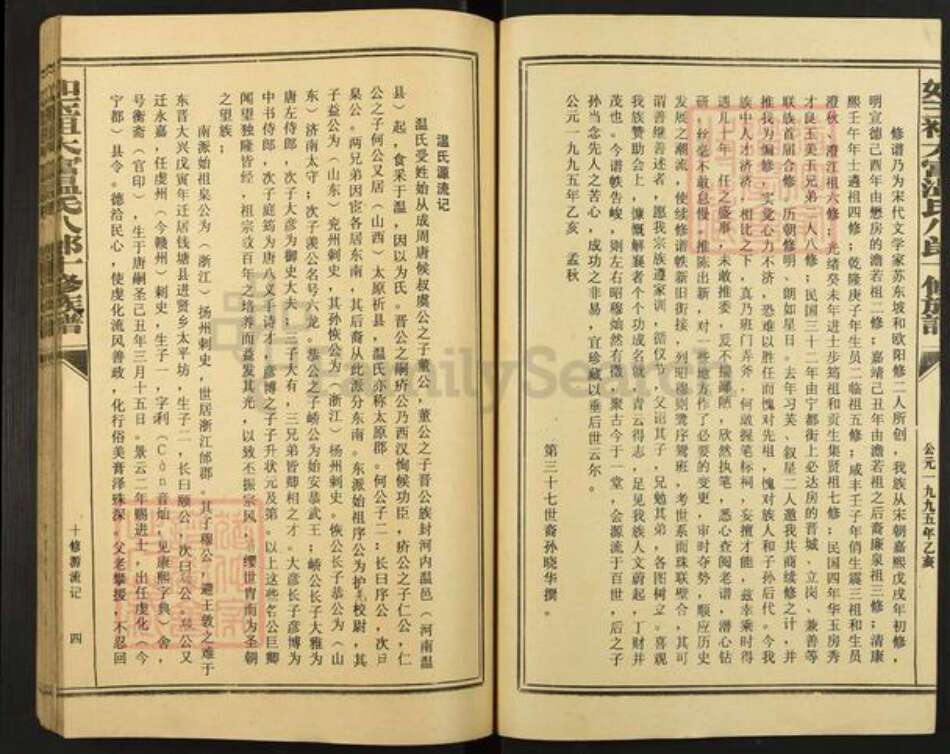 修谱乃为宋代文学家苏东坡和欧阳修二人所创，我族从宋朝嘉熙戊戌年初修，
明宣德己酉年由懋房的澹若祖二修；嘉靖己丑年由澹若祖之后裔廉泉祖三修；清康
熙壬午年士遴祖四修；乾隆庚子年生员二临祖五修；咸丰壬子年俏生震三祖和生员
澄秋、澄江祖六修；光绪癸未年进士步筠祖和贡生集贤祖七修；民国四年华玉房秀
才良玉美玉兄弟二人八修；民国三十二年由宁都街上必达房的晋城、立岗、兼善等
联族首届合修，历朝修明、朗如星日。去年习芙、叙星二人邀我共商续修之计，并
推我为偏修，实觉心力不济，恐难以胜任而愧对先祖，愧对族人和子孙后代。今我
族中人才济济，相比之下，真乃班门弄斧，何敢握笔标祠，妄擅才能，兹幸乘时得
遇几十年一任之盛事，未敢推委，爰不揣鄙陋，欣然执笔，悉心查阅老谱，潜心钻
研，丝毫不敢怠慢，推陈出新，对一些地方作了必要的变更，审时夺势，顺应历史
发展之潮流，使续修谱帙新旧衔接，列昭穆则鹭序鸳班，考世系而珠联璧合，其可
谓善继善述者，愿我宗族遵家训，循仪节，父诏其子，兄勉其弟，各图树立。喜观
我族赞助会上，慷慨解囊者个个功成名就，青云得志，足见我族人文蔚起，丁财并
茂也。今谱帙告峻，则左右昭穆灿然有微，聚古今于一堂，会源流于百世，后之子
孙当念先人之苦心，成功之非易，宜珍藏以垂后世云尔。
第三十七世裔孙晓华撰。
公元一九九五年乙亥 孟秋
公元一九九五年乙亥
温氏源流记
温氏受姓始从成周唐候叔虞公之子董公，董公之子晋公族封河内温邑（河南温
县）起，食采于温，因以为氏。晋公之嗣疥公乃西汉恂候功臣，疥公之子仁公，仁
公之子何公又居（山西）太原祁县，温氏亦称太原郡。何公子二；长曰序公，次曰
枭公。两兄弟因宦各居东南，其后裔从此源分东南。东派始祖序公为护羌校尉，其
子益公为（山东）兖州刺史，其孙恢公为（浙江）杨州刺史。恢公长子恭公为（山
东）济南太守；次子羡公名号六龙。恭公之子峤公为始安恭武王；峤公长子大雅为
唐左侍郎，次子大彦为御史大夫；三子大有，三兄弟皆卿相之才。大彦长子彦博为
中书侍郎，次子庭筠为唐八叉手诗才，彦博之子子升状元及第。以上这些名公巨卿
闻望独隆皆经，祖宗数百年之培养而益发其光，以致不振宗风，缨世胄而为圣朝
之望族；
南派始祖枭公为（浙江）扬州刺史，世居浙江郎郡。其子穆公，避王敦之难于
东晋大兴戊寅年迁居钱塘县进贤乡太平坊，生子二，长曰颐公，次曰公，公又
迁永嘉，任虔州（今赣州）刺史，生子一，字利（Còn音灿，见康熙字典）舍，
号衡斋（官印），生于唐嗣圣己丑年三月十五日。景云二年赐进士，出任虔化（今
宁都）县令。德洽民心，使虔化流风善政，化行俗美膏泽殊深。父老攀援，不忍回
十修源流记 四